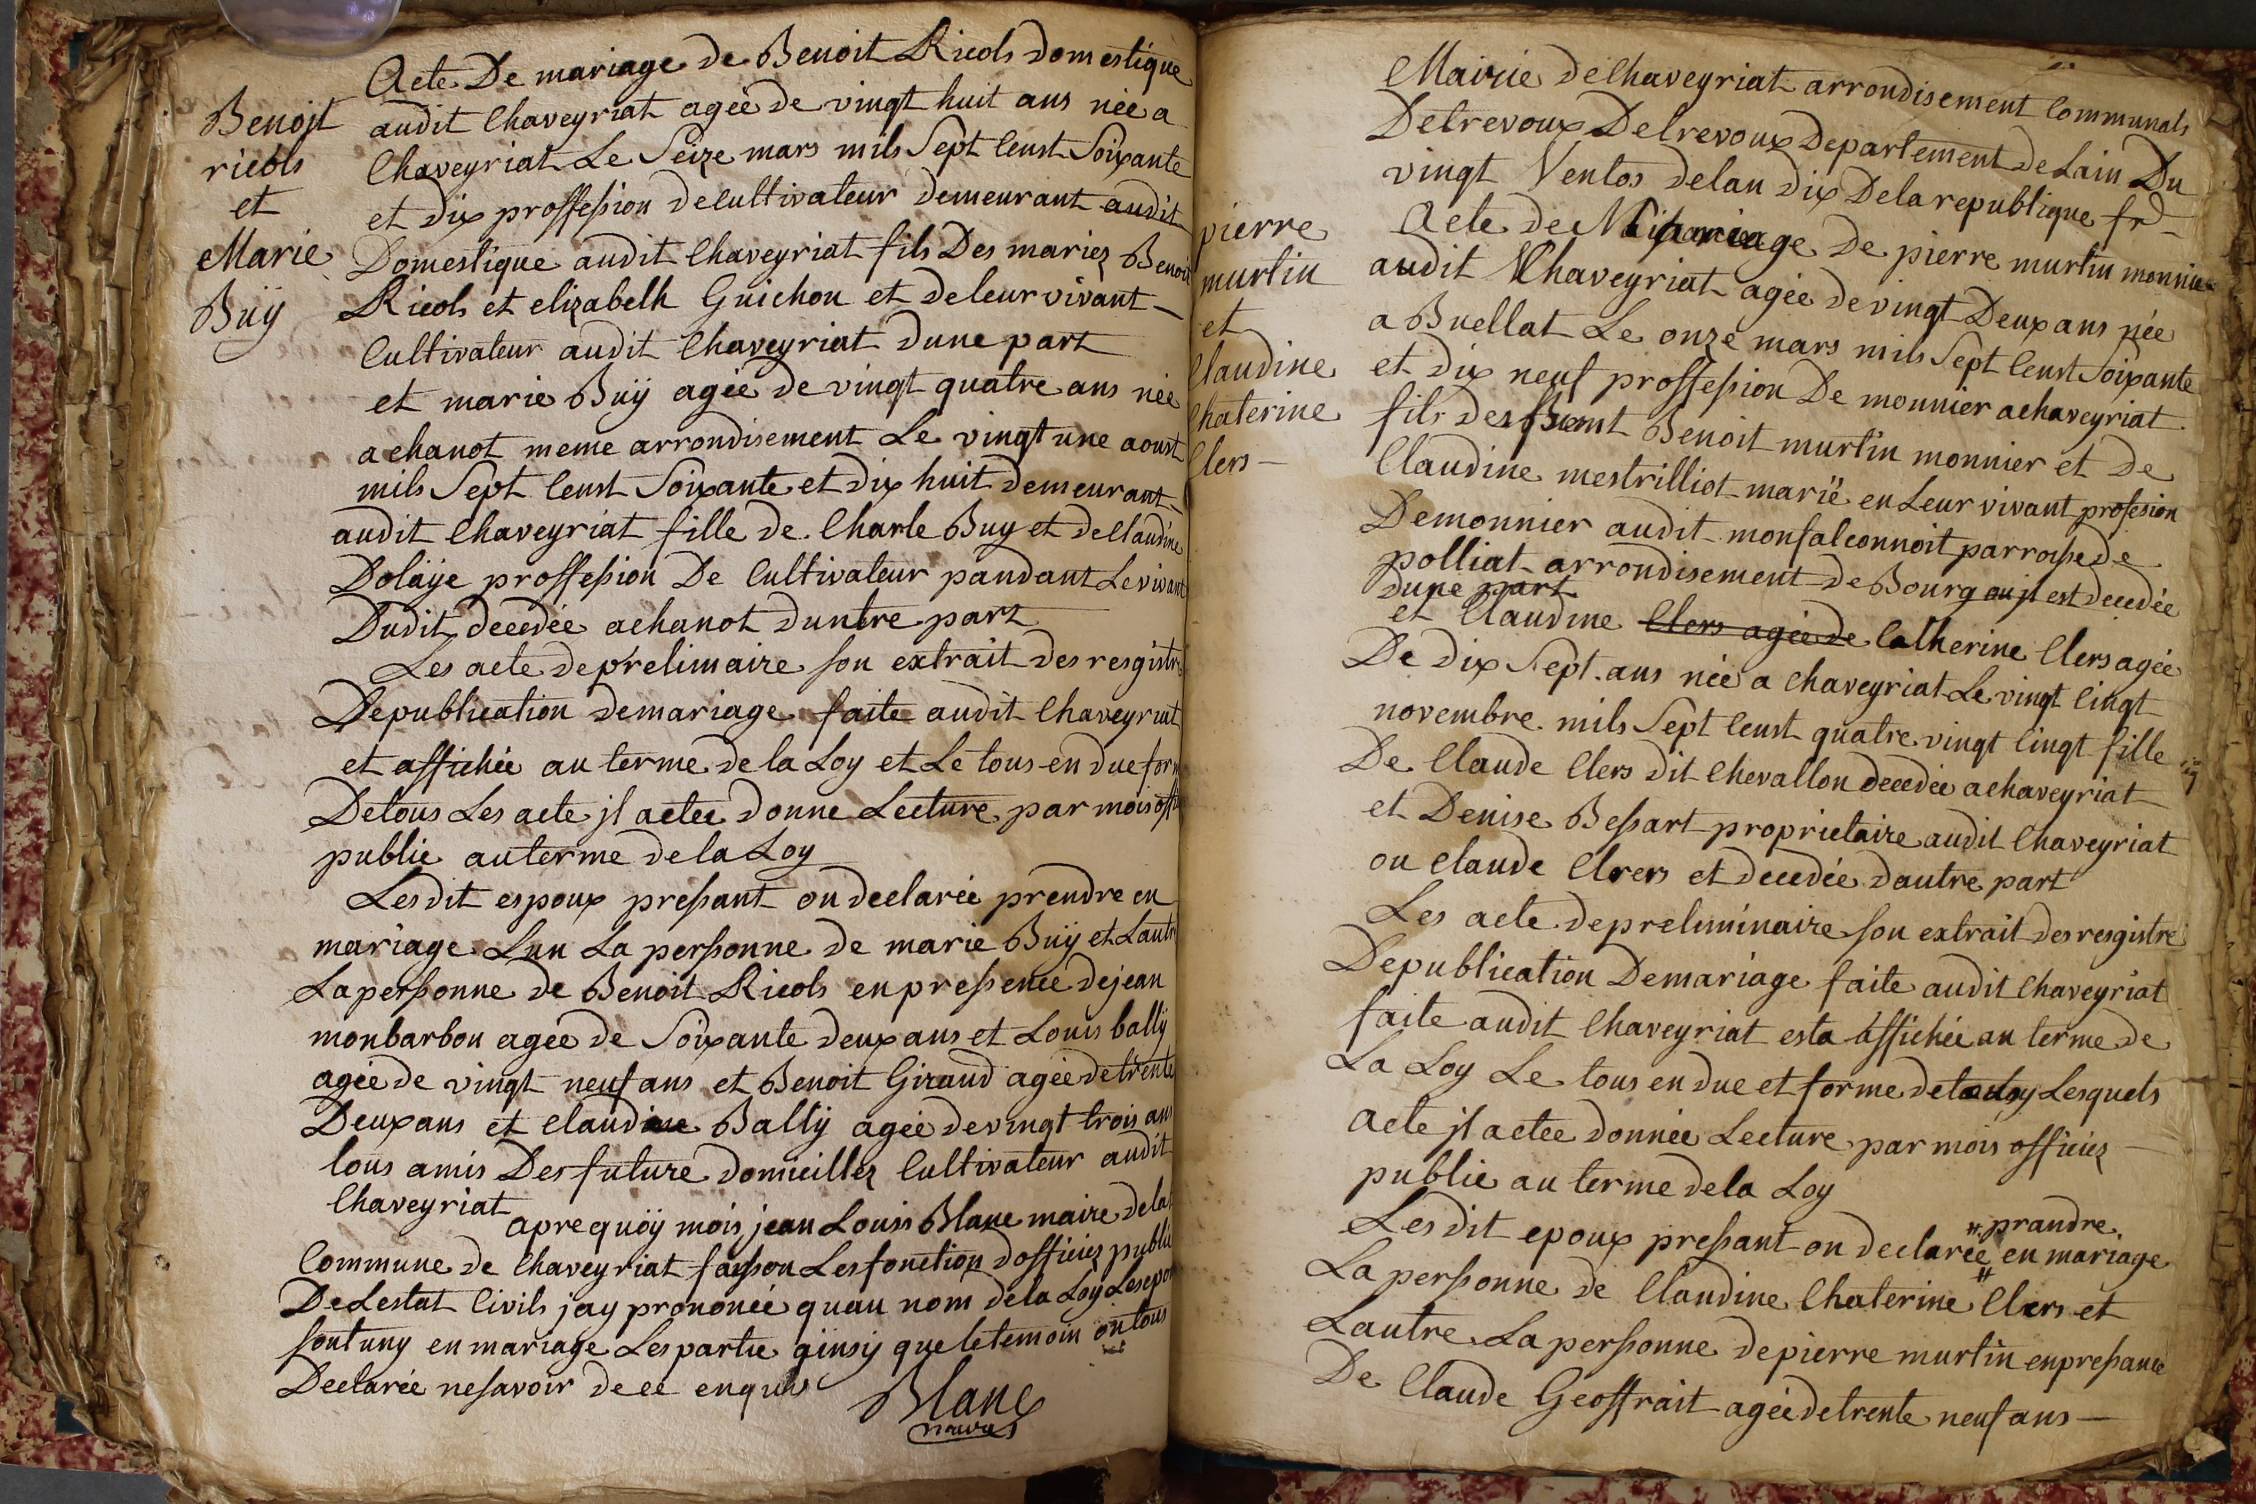 Benoit
ricols
et
Marie
Buÿ
Acte De mariage de Benoit Ricols domestique
audit Chaveyriat agée de vingt huit ans née a
Chaveyriat Le Seize mars mils Sept Censt Soixante
et dix proffession de Cultivateur demeurant audit
Domestique audit Chaveyriat fils Des mariez Benoit
Ricols et elizabelh Guichon et de leur vivant —
Cultivateur audit Chaveyriat Dune part
et marie Buÿ agée de vingt quatre ans née
a chanot meme arrondisement Le vingt une aoust
mils Sept Censt Soixante et dix huit demeurant
audit Chaveyriat fille de Charle Buy et de Claudine
Dolaÿe proffession De Cultivateur pandant Le vivant
Dudit decedée a chanot duntre part
Les acte de prelimaire son extrait des resgistre
De publication de mariage faite audit Chaveyriat
et affichée au terme de la Loy et Le tous en due form
De tous Les acte jl actee donne Lecture par mois offi
publie au terme de la Loy
Les dit espoux pressant on declarée prendre en
mariage Lun La personne de marie Buÿ et Lautre
La personne de Benoit Ricols en pressence de jean
monbarbon agée de Soixante deux ans et Louis ballÿ
agée de vingt neuf ans et Benoit Giraud agée de trente
Deux ans et Claudine Ballÿ agée de vingt trois ans
tous amis Des future domicillez Cultivateur audit
Chaveyriat
apre quoÿ mois jean Louis Blanc maire de la
Commune de Chaveyriat faisson Les fonction dofficiez public
De Lestat Civils jay prononcée quau nom de la Loy Les epou
sont uny en mariage Les partie ainsÿ que le temoin on tous
Declarée ne savoir de ce enquis
Blanc
maire
pierre
murtin
et
Claudine
Chaterine
Clers —
Mairie de Chaveyriat arrondisement Communals
De trevoux De trevoux Departement de Lain Du
vingt Ventos de lan dix De la republique fr
Acte de Mariage de pierre murtin monnier
audit Chaveyriat agée de vingt Deux ans née
a Buellat Le onze mars mils Sept Censt Soixante
et dix neuf proffession De monnier a chaveyriat
fils de Benoit murtin monnier et de
Claudine mestrilliot marië en Leur vivant profesion
De monnier audit monfalconnoit parroisse de
polliat arrondisement de Bourg ou jl est decedée
dune part
et Claudine Clers agée de Catherine Clers agée
De dix Sept ans née a chaveyriat Le vingt Cingt
novembre mils Sept Censt quatre vingt Cingt fille
De Claude Clers dit Chevallon decedée a chaveyriat
et Denise Bessart proprietaire audit Chaveyriat
ou Claude Clrers et decedée dautre part
Les acte de preliminaire son extrait des resgistre
De publication De mariage faite audit Chaveyriat
faite audit Chaveyriat esta affichée au terme de
La Loy Le tous en due et forme de Lesquels
acte jl actee donnée Lecture par mois officiez —
publie au terme de la Loy
Les dit epoux pressant on declarée # prandre en mariage
La personne de Claudine Chaterine # Clers et
Lautre La personne de pierre murtin en pressance
De Claude Geoffrait agée de trente neuf ans —